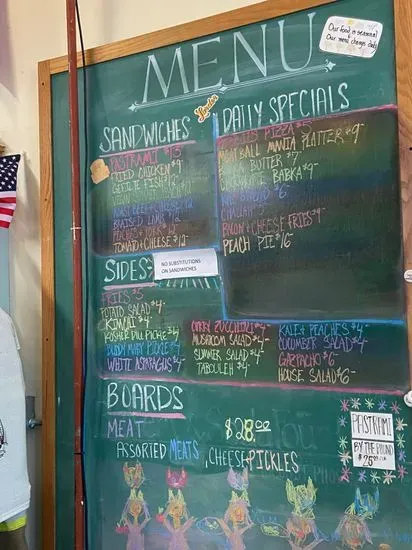 Our food is seasonal
Our menu changes daily
MENU
SANDWICHES
PASTRAMI $13
FRIED CHICKEN $9
GEFILTE FISH $12
ROAST BEEF + CHEESE $12
BRAISED LAMB $12
PEACHES + PORK $12
TOMATO + CHEESE $12
DAILY SPECIALS
PIZZA $5
MEATBALL MANIA PLATTER $9-
BUTTER $7
CHOCOLATE BABKA $9-
$6
CHALLAH
BACON + CHEESE FRIES $9-
PEACH PIE $16-
SIDES:
NO SUBSTITUTIONS
ON SANDWICHES
FRIES $5
POTATO SALAD $4-
KIMCHI $4
KOSHER DILL PICKLE $4
BLOODY MARY PICKLE $4
WHITE ASPARAGUS $4
CURRY ZUCCHINI $4-
MUSHROOM SALAD $4-
SUMMER SALAD $4-
TABOULEH $4-
KALE + PEACHES $4-
CUCUMBER SALAD $4-
GAZPACHO $6-
HOUSE SALAD $6-
BOARDS
MEAT $28.00
ASSORTED MEATS, CHEESE + PICKLES
PASTRAMI
BY THE POUND
$25.00